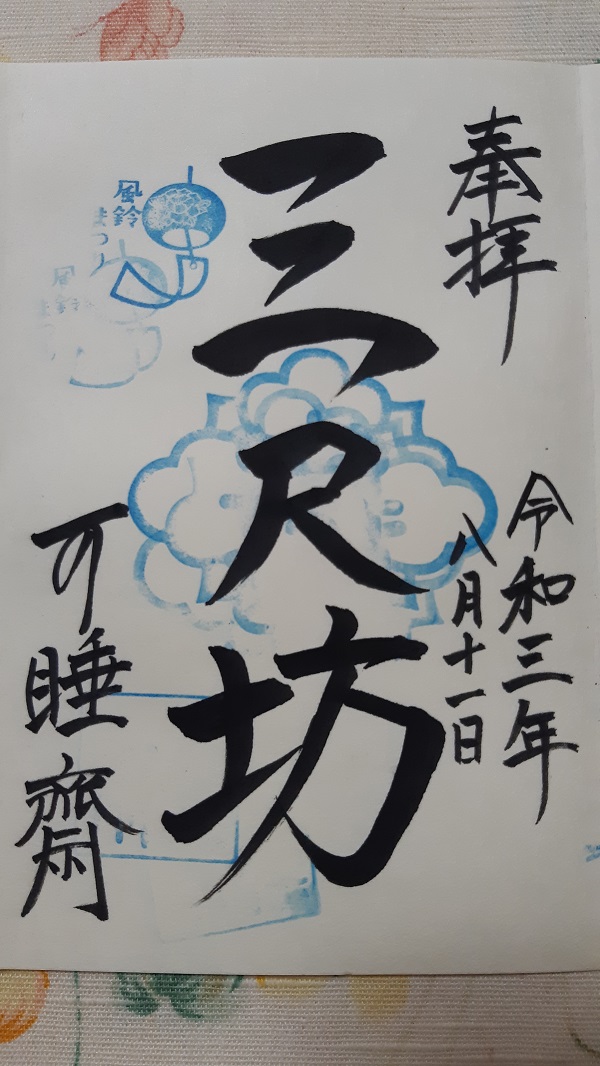 奉拝
令和三年
八月十一日
三尺坊
風鈴
まつり
風鈴
ま
可睡齋